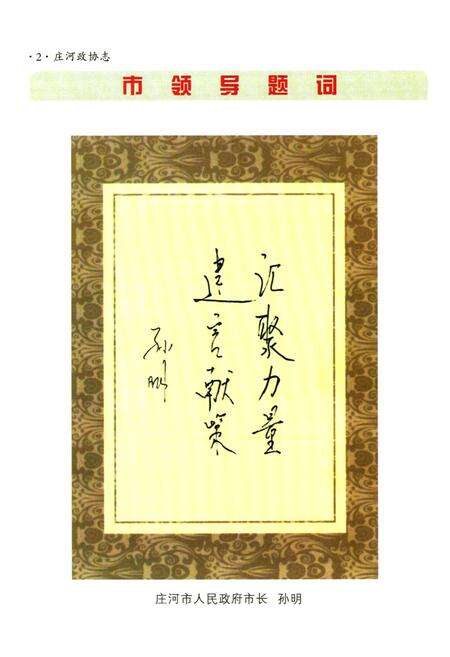 ·2·庄河政协志
市领导题词
汇聚力量
建言献策
孙明
庄河市人民政府市长 孙明